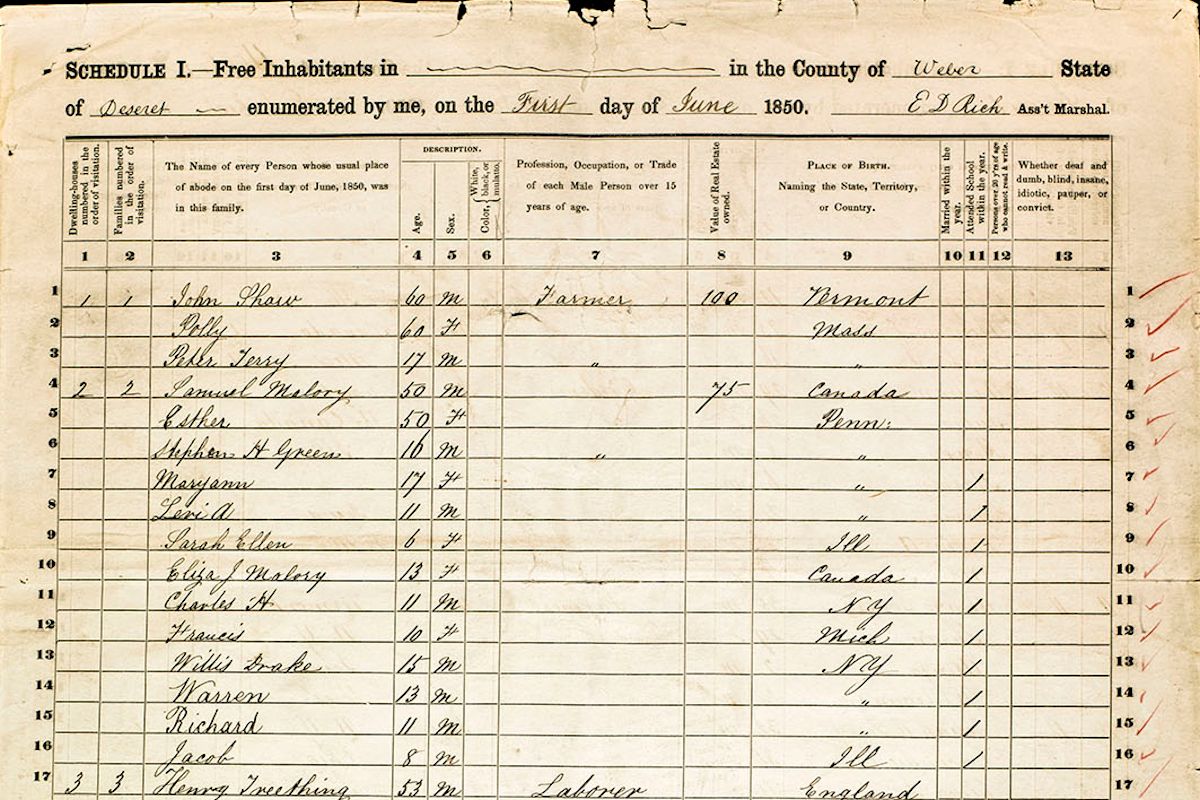 SCHEDULE I.—Free Inhabitants in in the County of Weber State
of Deseret enumerated by me, on the First day of June 1850. E D Rich Ass't Marshal.
Dwelling-houses numbered in the order of visitation.
Families numbered in the order of visitation.
The Name of every Person whose usual place of abode on the first day of June, 1850, was in this family.
DESCRIPTION.
Age.
Sex.
Color, { White, black, or mulatto.
Profession, Occupation, or Trade of each Male Person over 15 years of age.
Value of Real Estate owned.
PLACE OF BIRTH. Naming the State, Territory, or Country.
Married within the year.
Attended School within the year.
Persons over 20 y'rs of age who cannot read & write.
Whether deaf and dumb, blind, insane, idiotic, pauper, or convict.
1 2 3 4 5 6 7 8 9 10 11 12 13
1 1 1 John Shaw 60 M Farmer 100 Vermont 1
2 Polly 60 F Mass 2
3 Peter Terry 17 M " " 3
4 2 2 Samuel Malory 50 M 75 Canada 4
5 Esther 50 F Penn: 5
6 Stephen H Green 16 M " " 6
7 Maryann 17 F " 1 7
8 Levi A 11 M " 1 8
9 Sarah Ellen 6 F Ill 1 9
10 Eliza J Malory 13 F Canada 1 10
11 Charles H 11 M NY 1 11
12 Francis 10 F Mich 1 12
13 Willis Drake 15 M NY 1 13
14 Warren 13 M " 1 14
15 Richard 11 M " 1 15
16 Jacob 8 M Ill 1 16
17 3 3 Henry Treething 53 M Laborer England 17